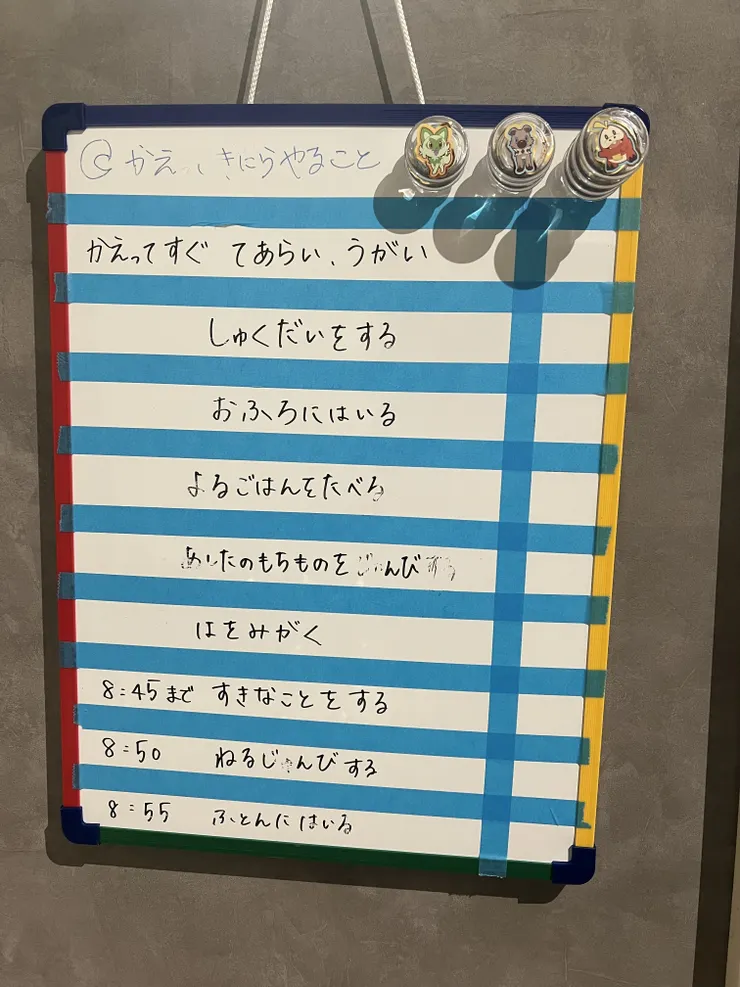 かえってきたらやること
かえってすぐ てあらい、うがい
しゅくだいをする
おふろにはいる
よるごはんをたべる
あしたのもちものをじゅんびする
はをみがく
8:45まで すきなことをする
8:50 ねるじゅんびする
8:55 ふとんにはいる